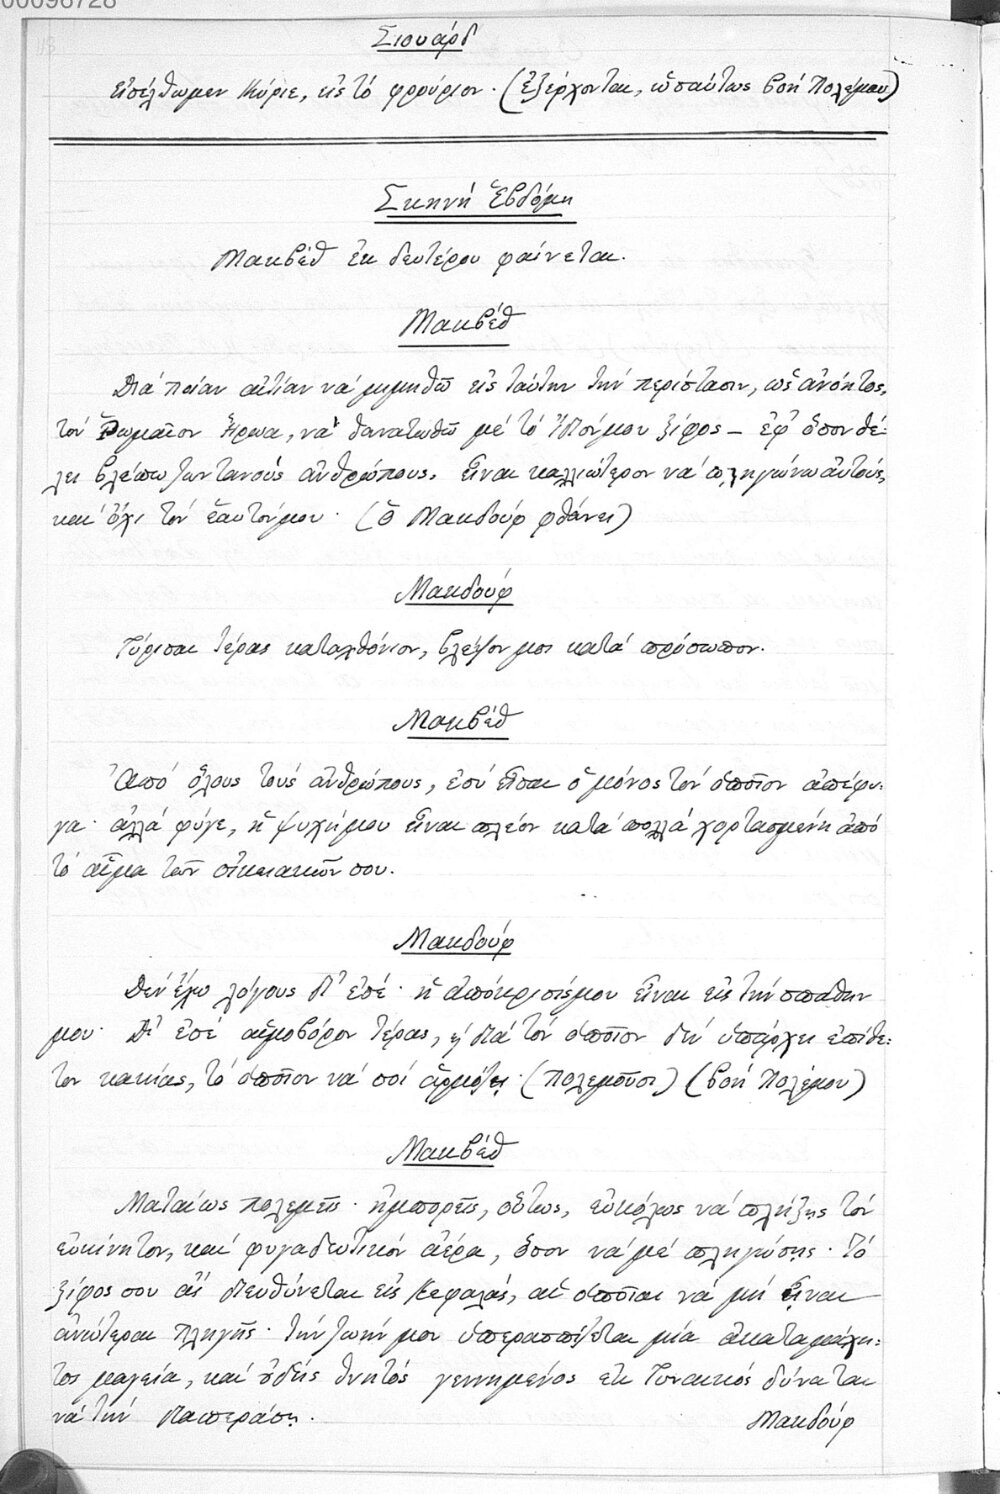 00096728
118
Σιουάρδ
εἰσέλθωμεν Κύριε, εἰς τό φρούριον· (ἐξέρχονται, ὡσαύτως βοή Πολέμου)
Σκηνή Ἑβδόμη
Μακβέθ ἐκ δευτέρου φαίνεται.
Μακβέθ
Διά ποίαν αἰτίαν νά μιμηθῶ εἰς ταύτην τήν περίστασιν, ὡς ἀνόητος,
τόν Ῥωμαῖον Ἥρωα, νά θανατωθῶ μέ τό ἴδιόν μου ξίφος – ἐφ' ὅσον θέ-
λει βλέπω ζωντανούς ἀνθρώπους. Εἶναι καλλιώτερον νά πληγώνω αὐτούς,
καί ὄχι τόν ἑαυτόν μου· (ὁ Μακδούφ φθάνει)
Μακδούφ
Γύρισαι τέρας καταχθόνιον, βλέψον με κατά πρόσωπον.
Μακβέθ
Ἀπό ὅλους τούς ἀνθρώπους, ἐσύ εἶσαι ὁ μόνος τόν ὁποῖον ἀπέφυ-
γα· ἀλλά φύγε, ἡ ψυχή μου εἶναι πλέον κατά πολλά χορτασμένη ἀπό
τό αἷμα τῶν οἰκειακῶν σου.
Μακδούφ
Δέν ἔχω λόγους δι' ἐσέ· ἡ ἀπόκρισίς μου εἶναι εἰς τήν σπάθην
μου· δι' ἐσέ αἱμοβόρον τέρας, διά τόν ὁποῖον δέν ὑπάρχει ἐπίθε-
τον κακίας, τό ὁποῖον νά σοί ἁρμόζει· (πολεμοῦσι) (βοή Πολέμου)
Μακβέθ
Ματαίως πολεμεῖς· ἠμπορεῖς, οὕτως, εὐκόλως νά πλήξῃς τόν
εὐκίνητον, καί φυγαδευτικόν ἀέρα, ὅσον νά μέ πληγώσῃς· τό
ξίφος σου ἄς διευθύνεται εἰς κεφαλάς, αἱ ὁποῖαι νά μή εἶναι
ἀνώτεραι πληγῆς· τήν ζωήν μου ὑπερασπίζεται μία ἀκαταμάχη-
τος μαγεία, καί οὐδείς θνητός γεννημένος ἐκ Γυναικός δύναται
νά τήν διαπεράσῃ.
Μακδούφ